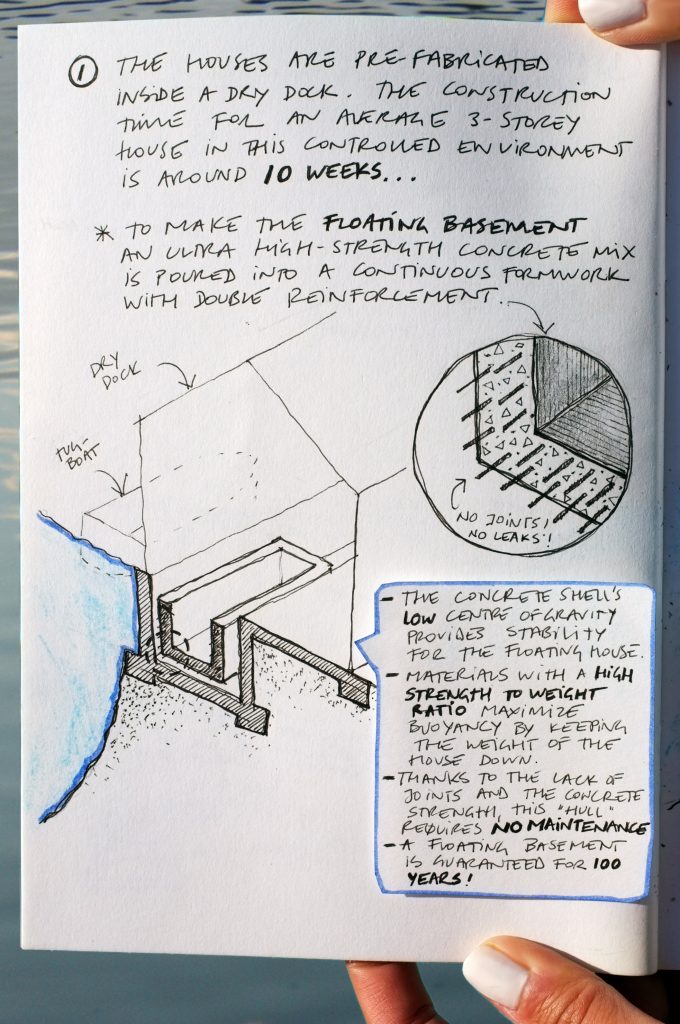 1 THE HOUSES ARE PRE-FABRICATED
INSIDE A DRY DOCK. THE CONSTRUCTION
TIME FOR AN AVERAGE 3-STOREY
HOUSE IN THIS CONTROLLED ENVIRONMENT
IS AROUND 10 WEEKS...
* TO MAKE THE FLOATING BASEMENT
AN ULTRA HIGH-STRENGTH CONCRETE MIX
IS POURED INTO A CONTINUOUS FORMWORK
WITH DOUBLE REINFORCEMENT.
DRY
DOCK
TUG-
BOAT
NO JOINTS!
NO LEAKS!
- THE CONCRETE SHELL'S
LOW CENTRE OF GRAVITY
PROVIDES STABILITY
FOR THE FLOATING HOUSE.
- MATERIALS WITH A HIGH
STRENGTH TO WEIGHT
RATIO MAXIMIZE
BUOYANCY BY KEEPING
THE WEIGHT OF THE
HOUSE DOWN.
- THANKS TO THE LACK OF
JOINTS AND THE CONCRETE
STRENGTH, THIS "HULL"
REQUIRES NO MAINTENANCE
- A FLOATING BASEMENT
IS GUARANTEED FOR 100
YEARS!